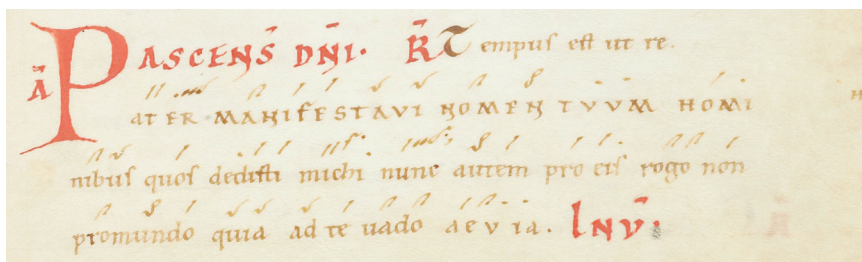 ASCENS̄ DN̄I. R̄ Tempus est ut re.
Ā PATER MANIFESTAVI NOMEN TVVM HOMI
nibus quos dedisti michi nunc autem pro eis rogo non
promundo quia ad te vado aevia. INV̄.